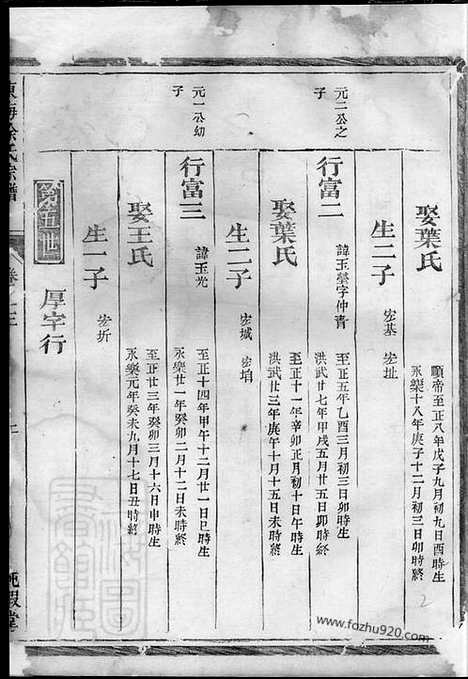 娶葉氏
順帝至正八年戊子九月初九日酉時生
永樂十八年庚子十二月初三日卯時終
生二子
宏基 宏址
元二公之
子
行富二
諱玉瑩字仲青
至正五年乙酉三月初三日卯時生
洪武廿七年甲戌五月廿五日卯時終
娶葉氏
至正十一年辛卯正月初十日午時生
洪武廿三年庚午十月十五日未時終
生二子
宏城 宏堉
元一公幼
子
行富三
諱玉光
至正十四年甲午十二月廿一日巳時生
永樂廿一年癸卯二月十二日未時終
娶王氏
至正廿三年癸卯三月十六日申時生
永樂元年癸未九月十七日丑時終
生一子
宏圻
第五世
厚字行
東海徐氏宗譜
卷之三
純嘏堂
2
www.fozhu920.com